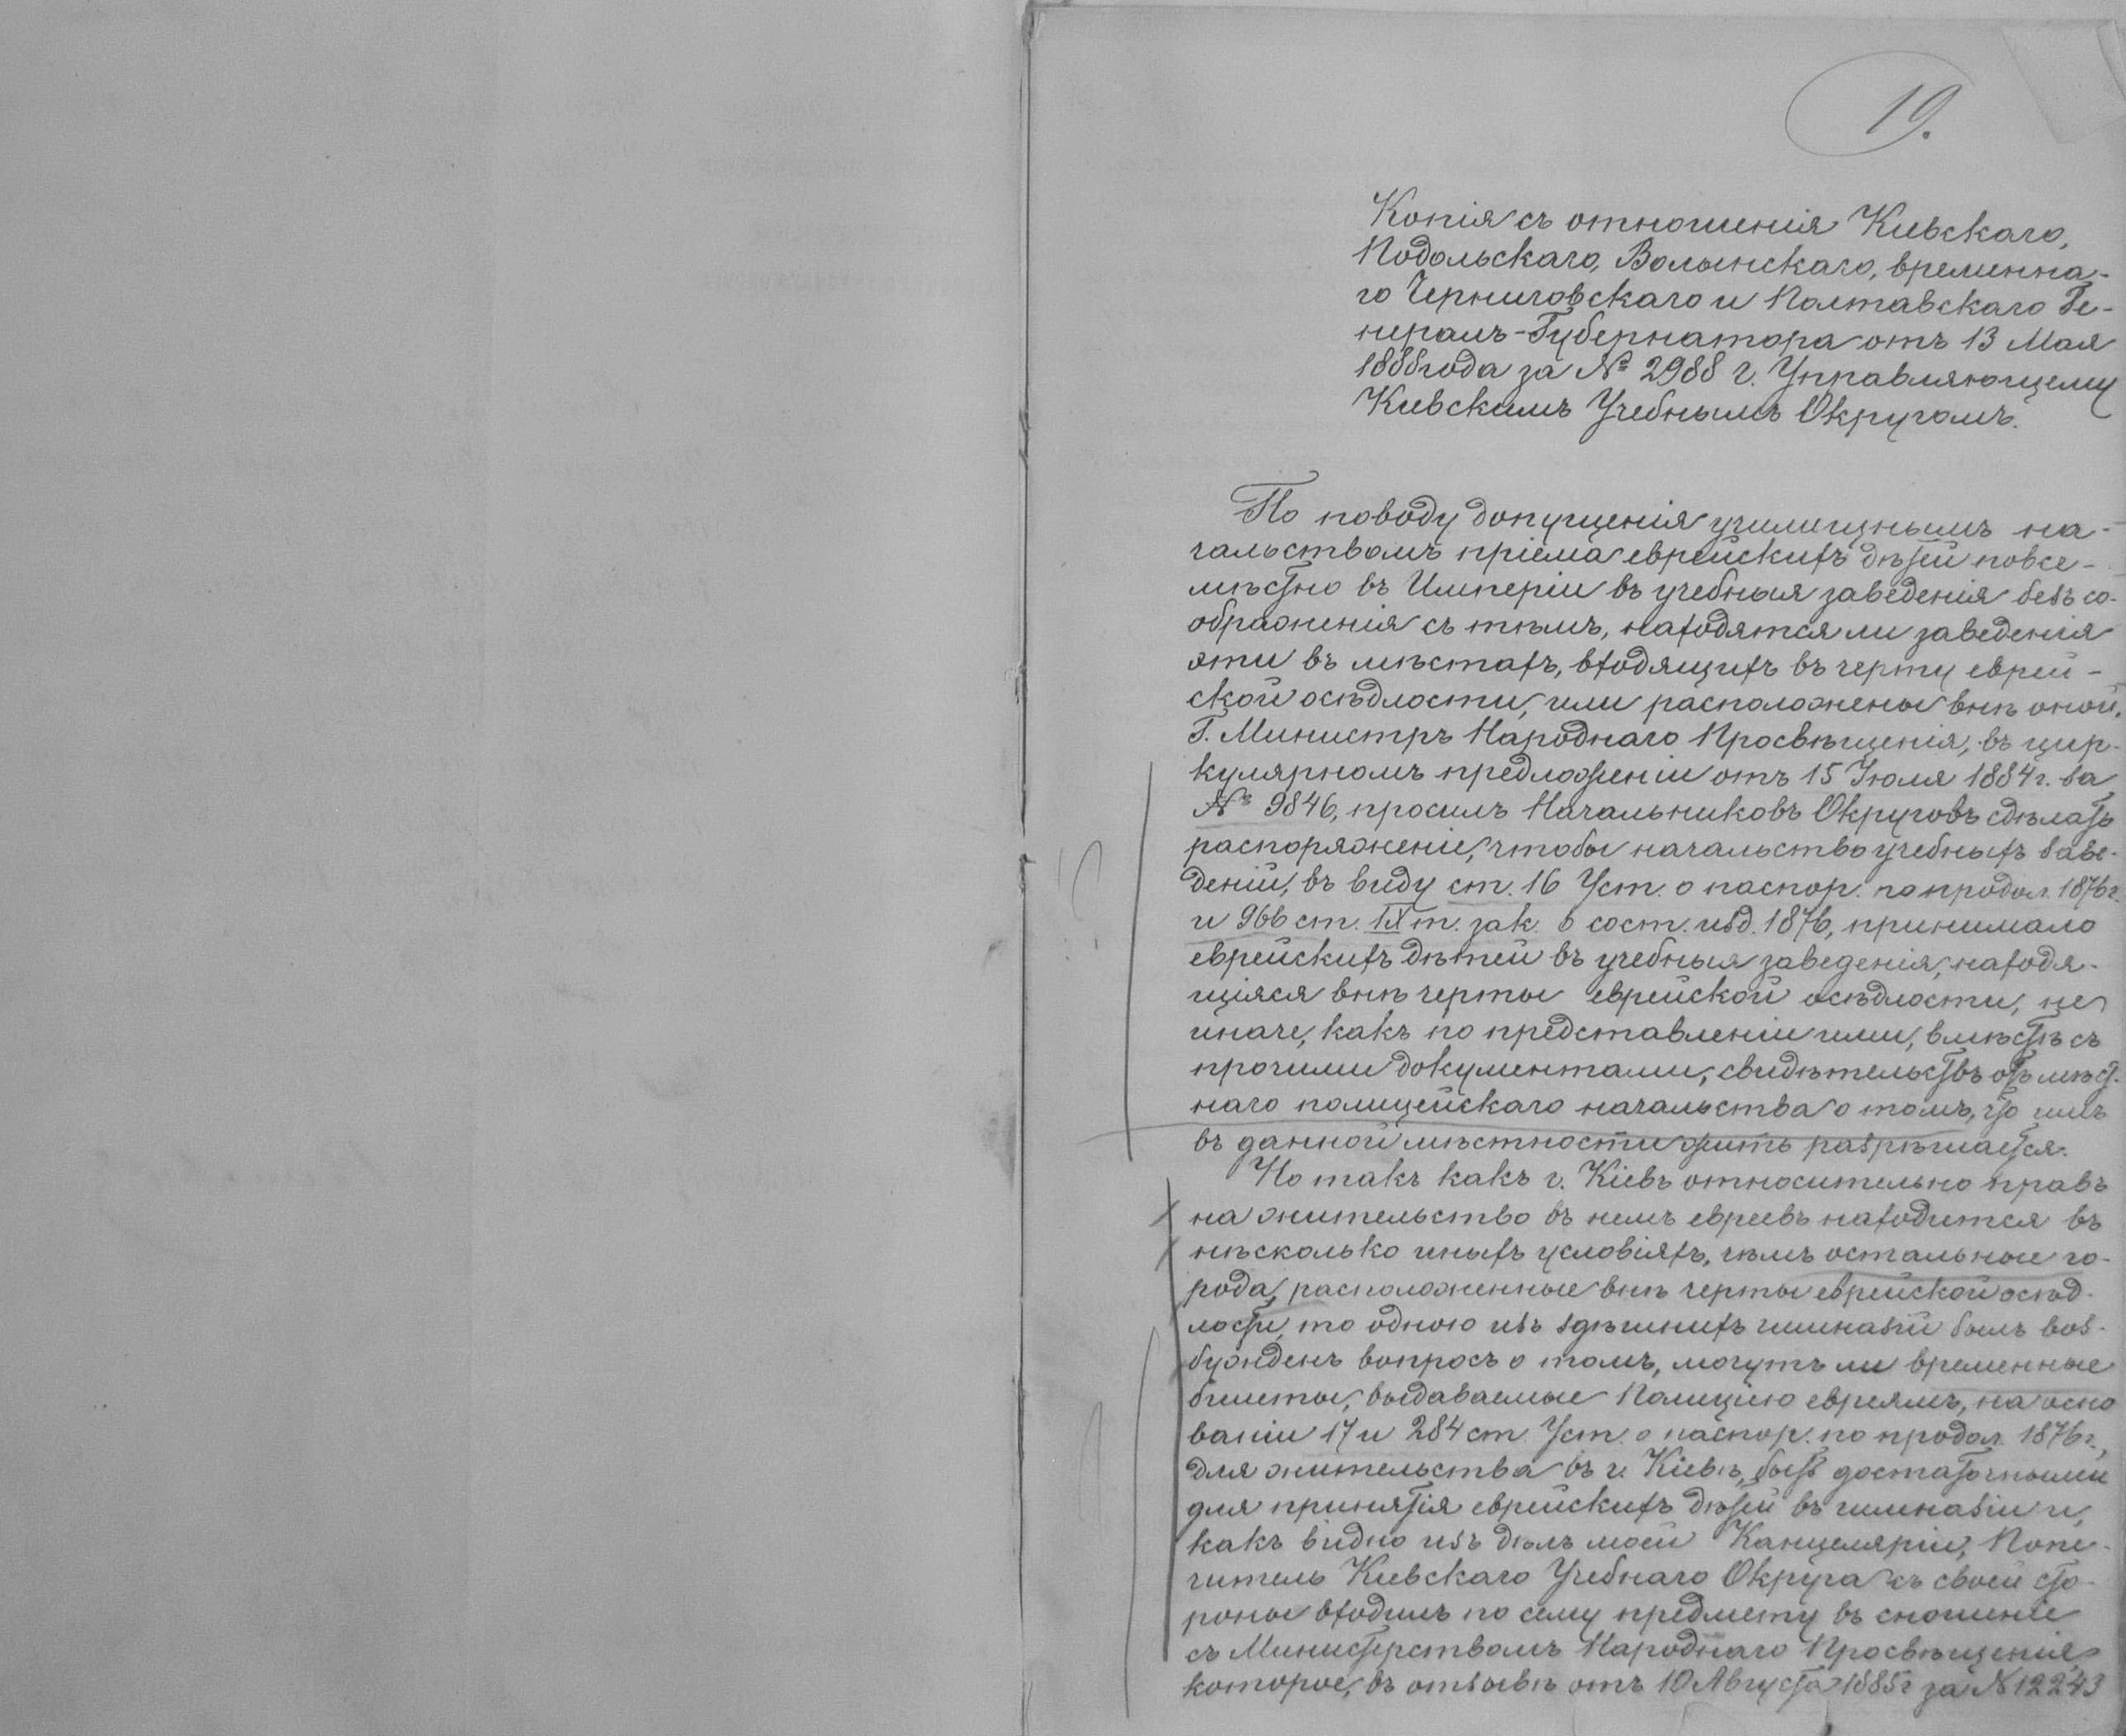 19.
Копія съ отношенія Кіевскаго,
Подольскаго, Волынскаго, временна-
го Черниговскаго и Полтавскаго Ге-
нералъ-Губернатора отъ 13 Мая
1888 года за № 2988 г. Управляющему
Кіевскимъ Учебнымъ Округомъ.
По поводу допущенія училищнымъ на-
чальствомъ пріема еврейскихъ дѣтей повсе-
мѣстно въ Имперіи въ учебныя заведенія безъ со-
ображенія съ тѣмъ, находятся ли заведенія
эти въ мѣстахъ, входящихъ въ черту еврей-
ской осѣдлости, или расположены внѣ оной,
Г. Министръ Народнаго Просвѣщенія, въ цир-
кулярномъ предложеніи отъ 15 Іюля 1884 г. за
№ 9846, просилъ Начальниковъ Округовъ сдѣлать
распоряженіе, чтобы начальство учебныхъ заве-
деній, въ виду ст. 16 Уст. о паспор. по продол. 1876 г.
и 966 ст. IX т. зак. о сост. изд. 1876, принимало
еврейскихъ дѣтей въ учебныя заведенія, находя-
щіяся внѣ черты еврейской осѣдлости, не
иначе, какъ по представленіи ими, вмѣстѣ съ
прочими документами, свидѣтельствъ отъ мѣст-
наго полицейскаго начальства о томъ, что имъ
въ данной мѣстности жить разрѣшается.
Но такъ какъ г. Кіевъ относительно правъ
на жительство въ немъ евреевъ находится въ
нѣсколько иныхъ условіяхъ, чѣмъ остальные го-
рода, расположенные внѣ черты еврейской осѣд-
лости, то одною изъ здѣшнихъ гимназій былъ воз-
бужденъ вопросъ о томъ, могутъ ли временные
билеты, выдаваемые Полиціею евреямъ, на осно
ваніи 17 и 284 ст. Уст. о паспор. по продол. 1876 г.,
для жительства въ г. Кіевѣ, быть достаточными
для принятія еврейскихъ дѣтей въ гимназіи и,
какъ видно изъ дѣлъ моей Канцеляріи, Попе-
читель Кіевскаго Учебнаго Округа съ своей сто-
роны входилъ по сему предмету въ сношеніе
съ Министерствомъ Народнаго Просвѣщенія,
которое, въ отзывѣ отъ 10 Августа 1885 г за № 12243